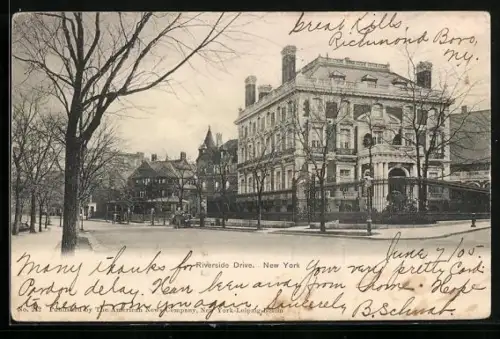 Great Kills,
Richmond Boro,
Ny.
Riverside Drive. New York
June 7/05.
Many thanks for your very pretty Card
Pardon delay. Have been away from home. Hope
to hear from you again Sincerely B. Schwab.
No. 212 Published by The American News Company, New York-Leipzig-Berlin